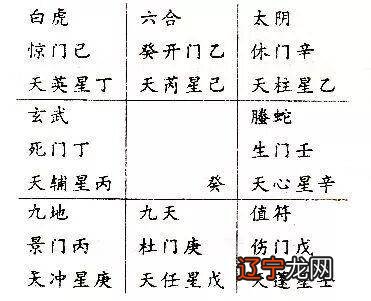 白虎
惊门己
天英星丁
六合
癸开门乙
天芮星己
太阴
休门辛
天柱星乙
玄武
死门丁
天辅星丙
癸
螣蛇
生门壬
天心星辛
九地
景门丙
天冲星庚
九天
杜门庚
天任星戊
值符
伤门戊
天蓬星壬
辽宁龙网